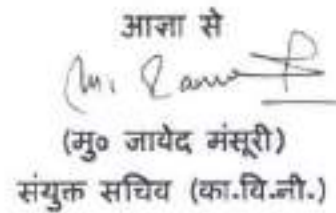 आज्ञा से
(मु० जावेद मंसूरी)
संयुक्त सचिव (का.वि.नी.)